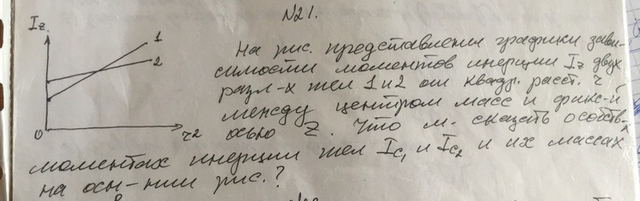 №21.
Iz
1
2
0
r2
На рис. представлены графики зави-
симости моментов инерции Iz двух
разл-х тел 1 и 2 от квадр. расст. r
между центром масс и фикс-й
осью Z. Что м. сказать о собств-х
моментах инерции тел Ic1 и Ic2 и их массах
на осн-нии рис.?